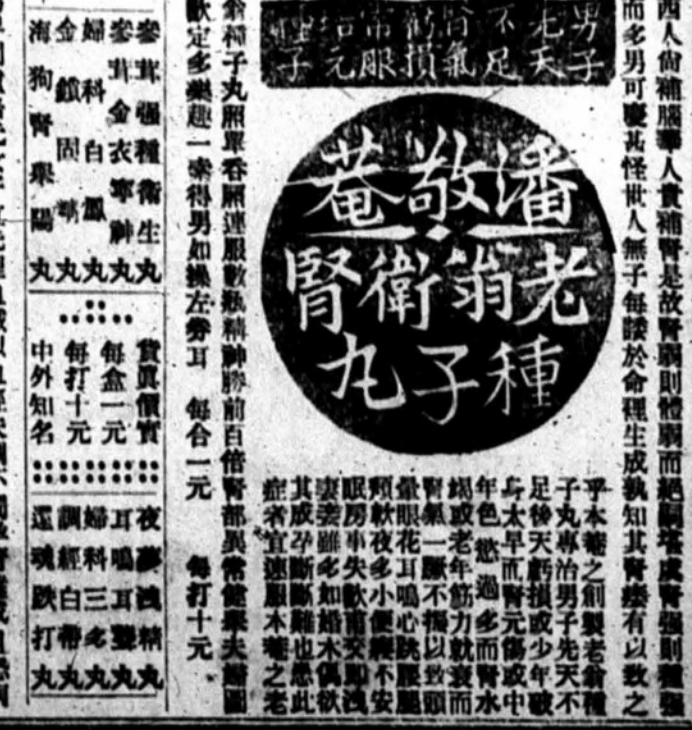 四人尙補腦華人貴補腎是故腎弱則體弱而絕嗣堪虞腎强則種强
而多男可慶甚怪世人無子每諉於命裡生成孰知其腎瘘有以致之
男子
先天
不足
腎氣
虧損
常服
培元
種子
潘敬菴
老翁衛腎
種子丸
乎本菴之創製老翁種
子丸專治男子先天不
足後天虧損或少年破
身太早而腎元傷或中
年色慾過多而腎水
竭或老年筋力就衰而
腎氣一蹶不振以致頭
暈眼花耳鳴心跳腰腿
頻軟夜多小便寢不安
眠房事失歡甫交即洩
妻妾雖多如婚木偶欲
其成孕斷斷難也患此
症者宜速服本菴之老
翁種子丸照單吞服連服數瓶精神勝前百倍腎部異常健舉夫婦圖
歡定多樂趣一索得男如操左劵耳 每合一元 每打十元
參茸强種衛生丸
參茸金衣寧神丸
婦科白鳳丸
金鎖固精丸
海狗腎舉陽丸
貨真價實
每盒一元
每打十元
中外知名
夜夢洩精丸
耳鳴耳聾丸
婦科三多丸
調經白帶丸
還魂跌打丸